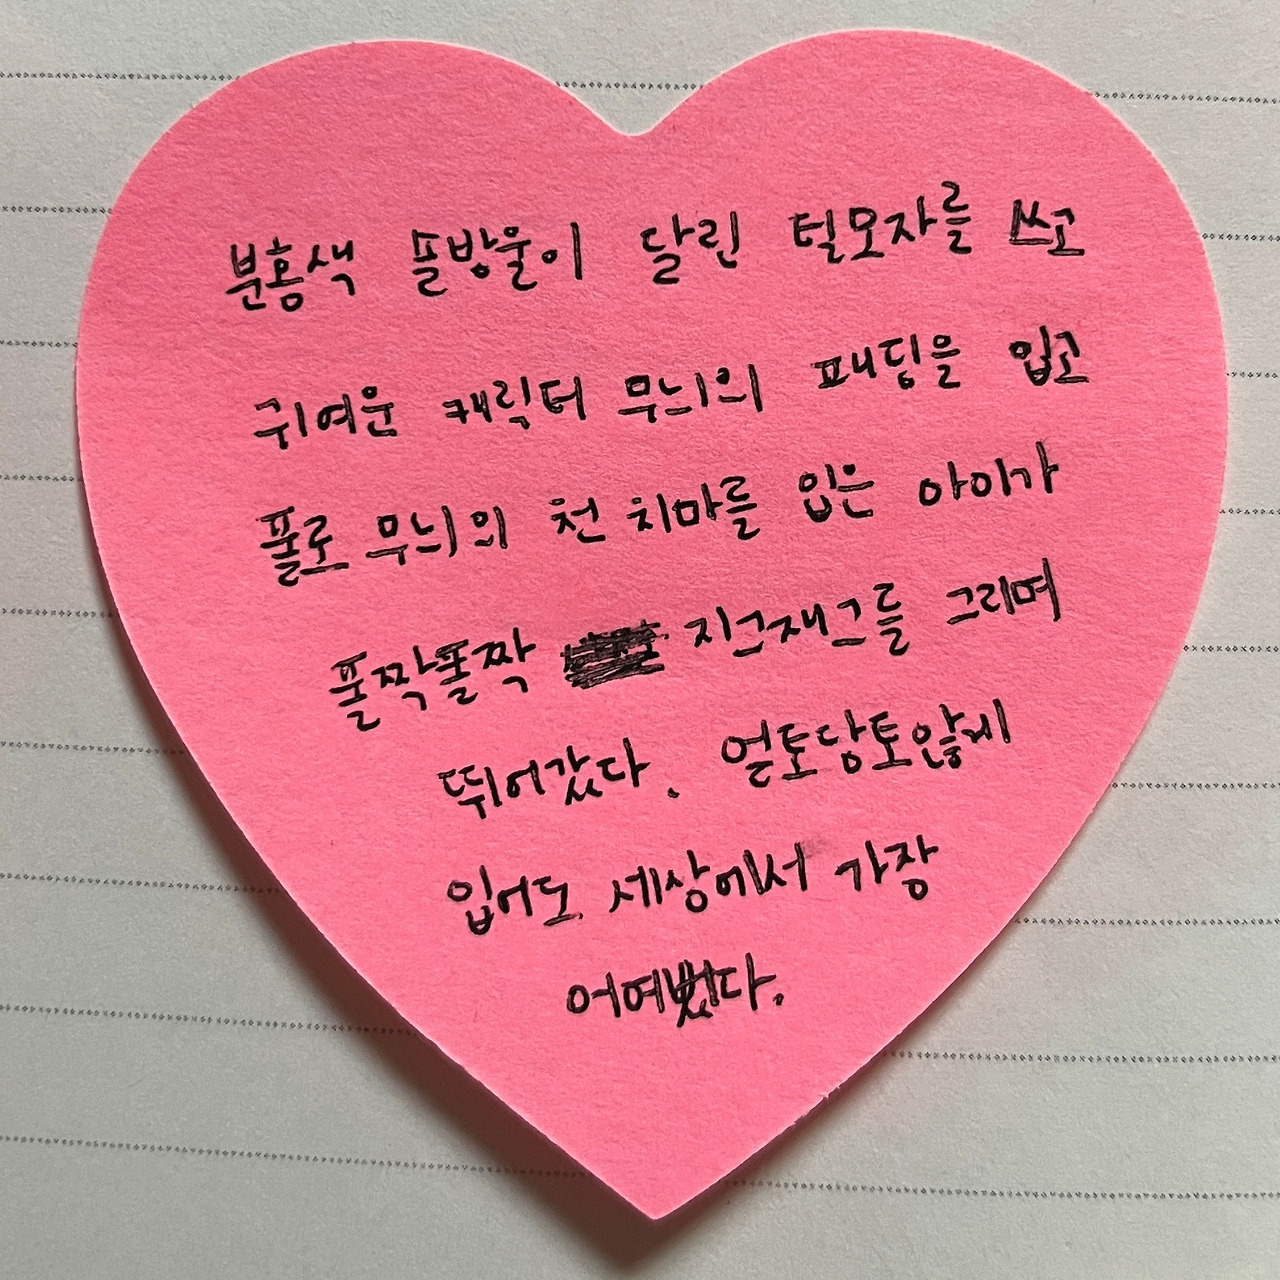 분홍색 플방울이 달린 털모자를 쓰고
귀여운 캐릭터 무늬의 패딩을 입고
풀로 무늬의 천 치마를 입은 아이가
폴짝폴짝 지그재그를 그리며
뛰어갔다. 얼토당토않게
입어도 세상에서 가장
어여뻤다.